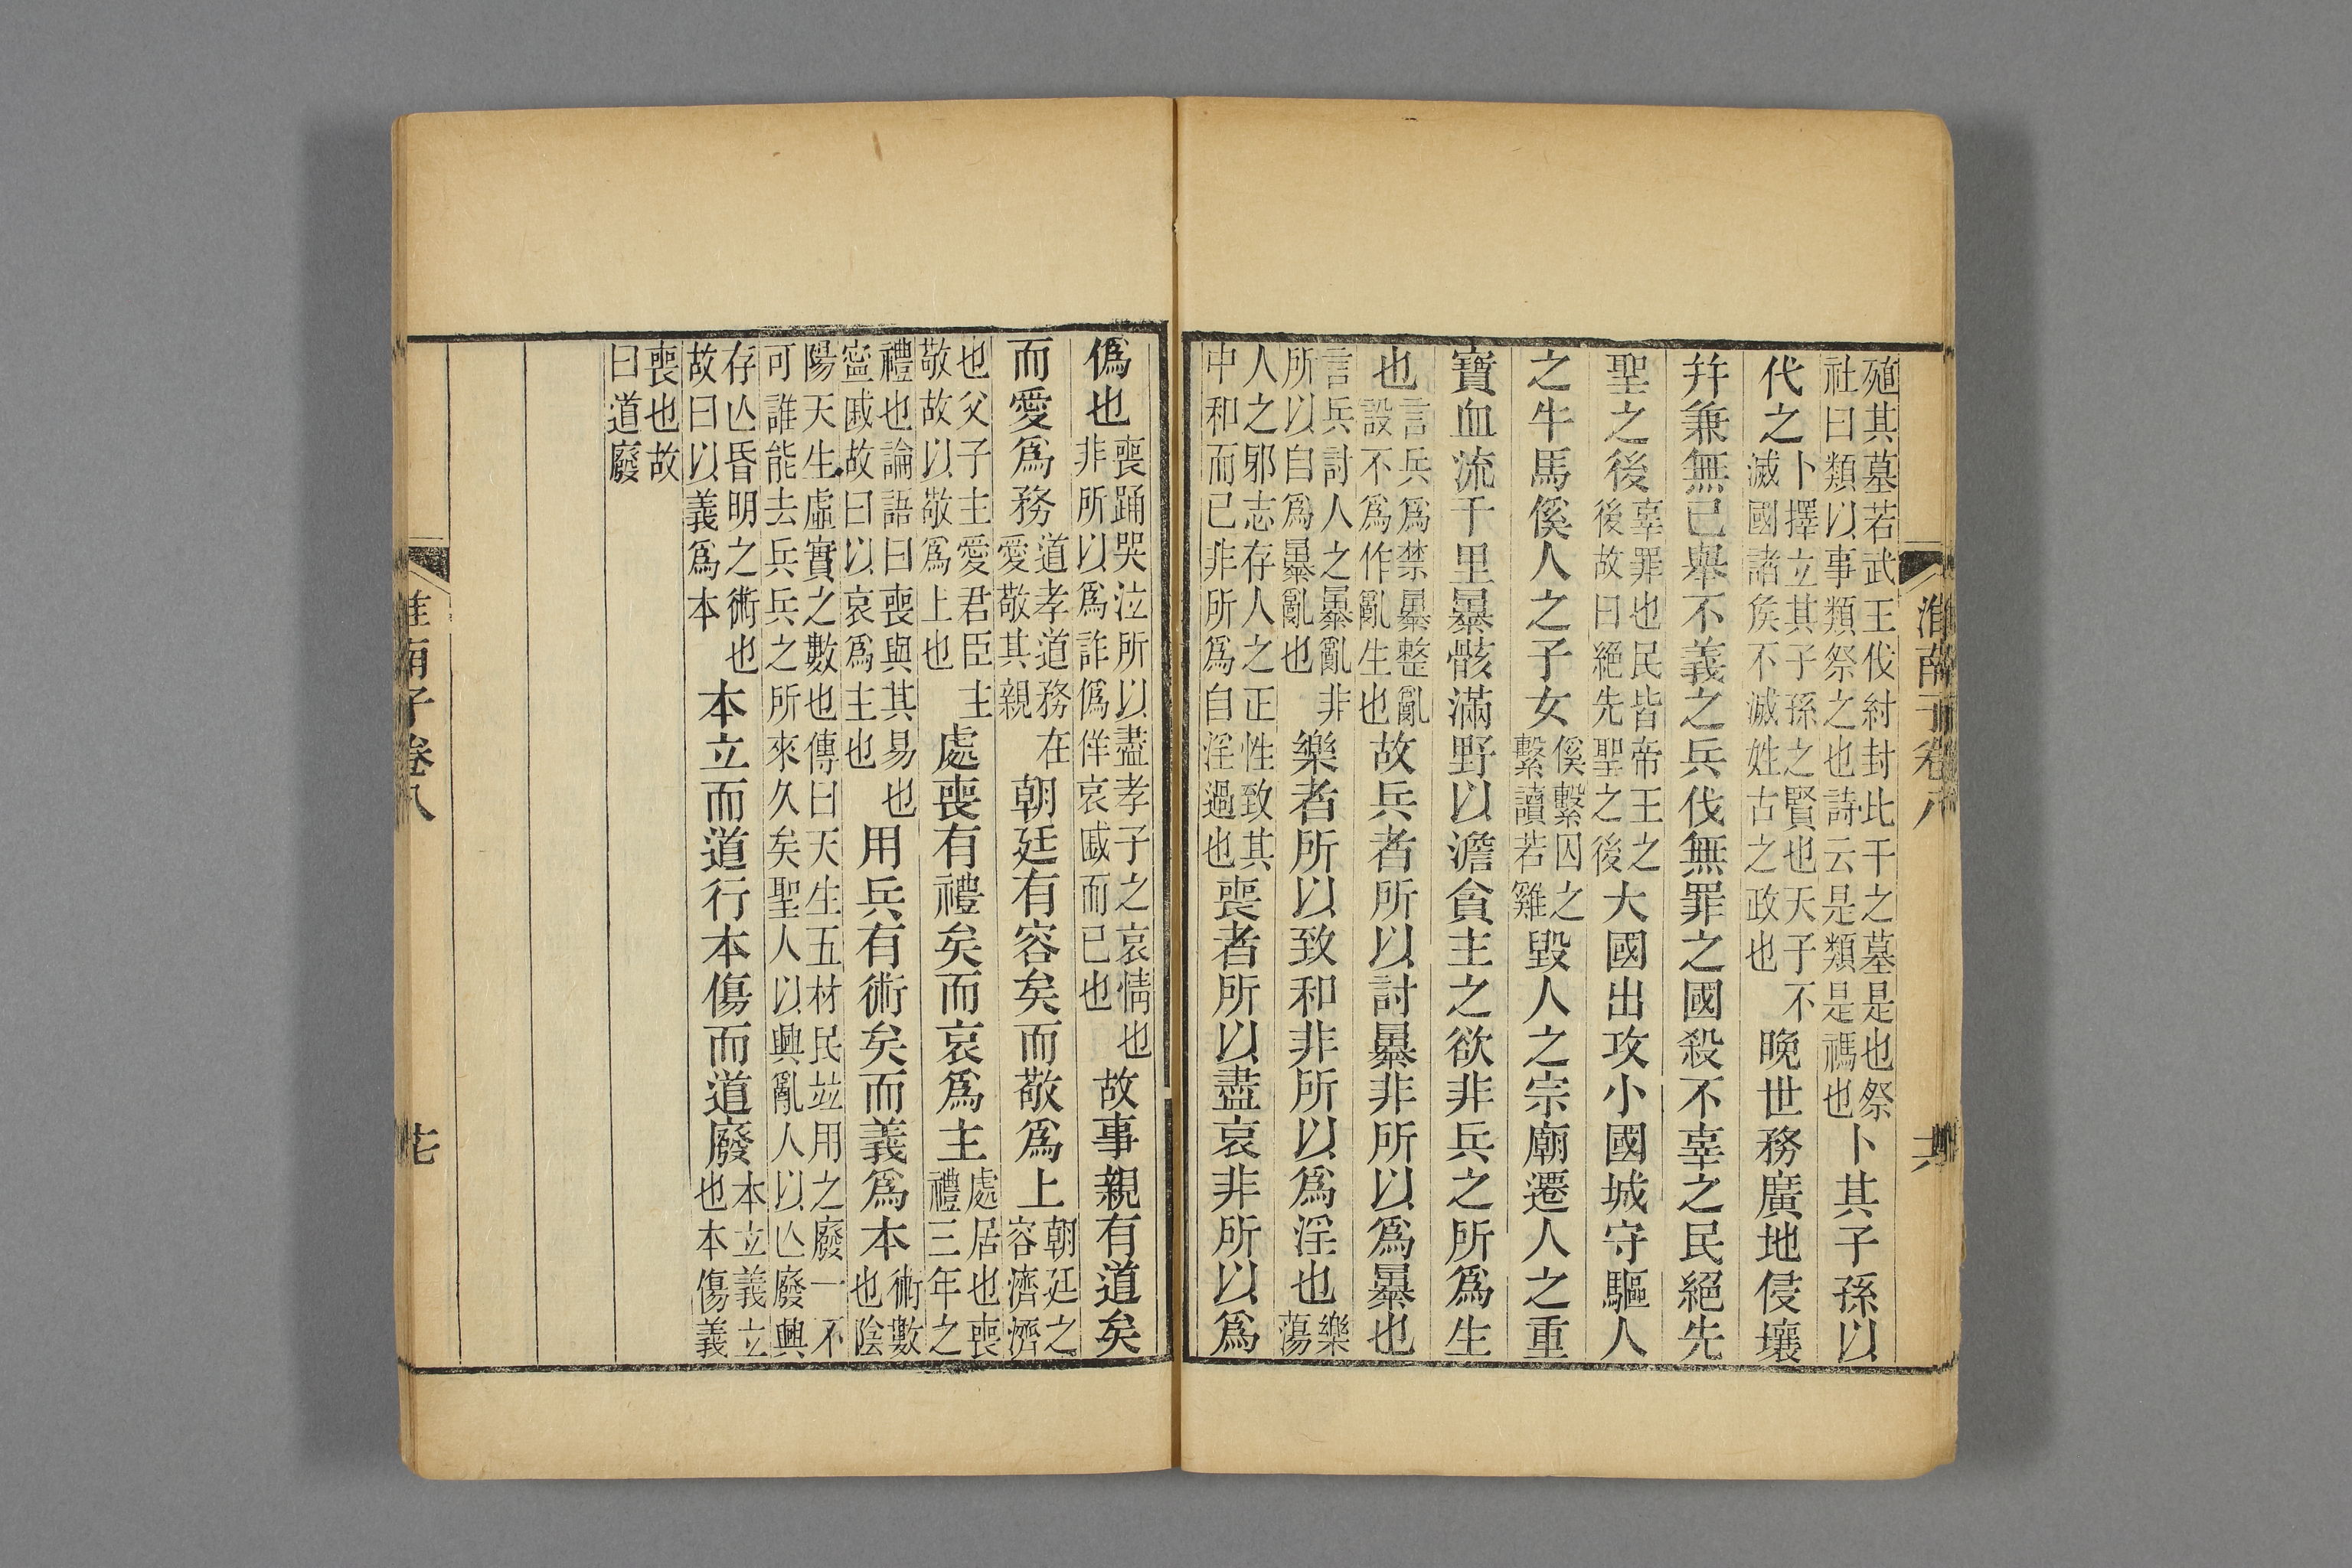 淮南子卷八
殖其墓若武王伐紂封此干之墓是也祭社曰類以事類祭之也詩云是類是禡也卜其子孫以
代之卜擇立其子孫之賢也天子不滅國諸矦不滅姓古之政也晚世務廣地侵壤
幷兼無已舉不義之兵伐無罪之國殺不辜之民絕先
聖之後辜罪也民皆帝王之後故曰絕先聖之後大國出攻小國城守驅人
之牛馬傒人之子女傒繫囚之繫讀若雞毀人之宗廟遷人之重
寶血流千里暴骸滿野以澹貪主之欲非兵之所爲生
也言兵爲禁暴整亂設不爲作亂生也故兵者所以討暴非所以爲暴也
言兵討人之暴亂非所以自爲暴亂也樂者所以致和非所以爲淫也樂蕩
人之邪志存人之正性致其中和而已非所爲自淫過也喪者所以盡哀非所以爲
僞也喪踊哭泣所以盡孝子之哀情也非所以爲詐僞佯哀戚而已也故事親有道矣
而愛爲務道孝道務在愛敬其親朝廷有容矣而敬爲上朝廷之容濟濟
也父子主愛君臣主敬故以敬爲上也處喪有禮矣而哀爲主處居也喪禮三年之
禮也論語曰喪與其易也寍戚故曰以哀爲主也用兵有術矣而義爲本術數也陰
陽天生虛實之數也傳曰天生五材民竝用之廢一不可誰能去兵兵之所來久矣聖人以興亂人以亾廢興
存亾昏明之術也故曰以義爲本本立而道行本傷而道廢本立義立也本傷義
喪也故曰道廢
淮南子卷八